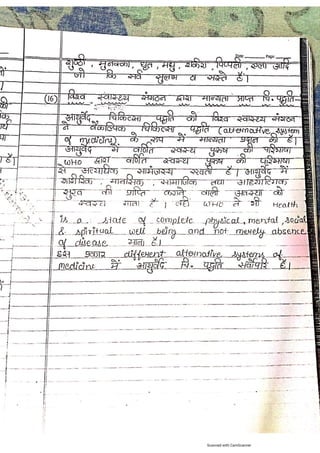 शुण्ठी, मुनक्का, घृत, मधु, शर्करा, पिप्पली, एला आदि
जो कि सर्व सुलभ व सस्ते हैं।
(16) विश्व स्वास्थ्य संगठन द्वारा मान्यता प्राप्त चि. पद्धति-
आयुर्वेद चिकित्सा पद्धति को विश्व स्वास्थ्य संगठन
ने वैकल्पिक चिकित्सा पद्धति (alternative system
of medicine) के रूप में मान्यता प्रदान की है।
आयुर्वेद में वर्णित स्वस्थ पुरुष की परिभाषा
WHO द्वारा वर्णित स्वस्थ पुरुष की परिभाषा
से अत्यधिक सामंजस्य रखती है। आयुर्वेद में
शारीरिक, मानसिक, सामाजिक तथा आध्यात्मिक
सुख की प्राप्ति कराने वाली अवस्था को
स्वस्थ माना है। वहीं WHO ने भी Health
is a state of complete physical, mental, social
& spiritual well being and not merely absence
of disease माना है।
इस प्रकार different alternative systems of
medicine में आयुर्वेद चि. पद्धति सर्वोपरि है।
Scanned with CamScanner